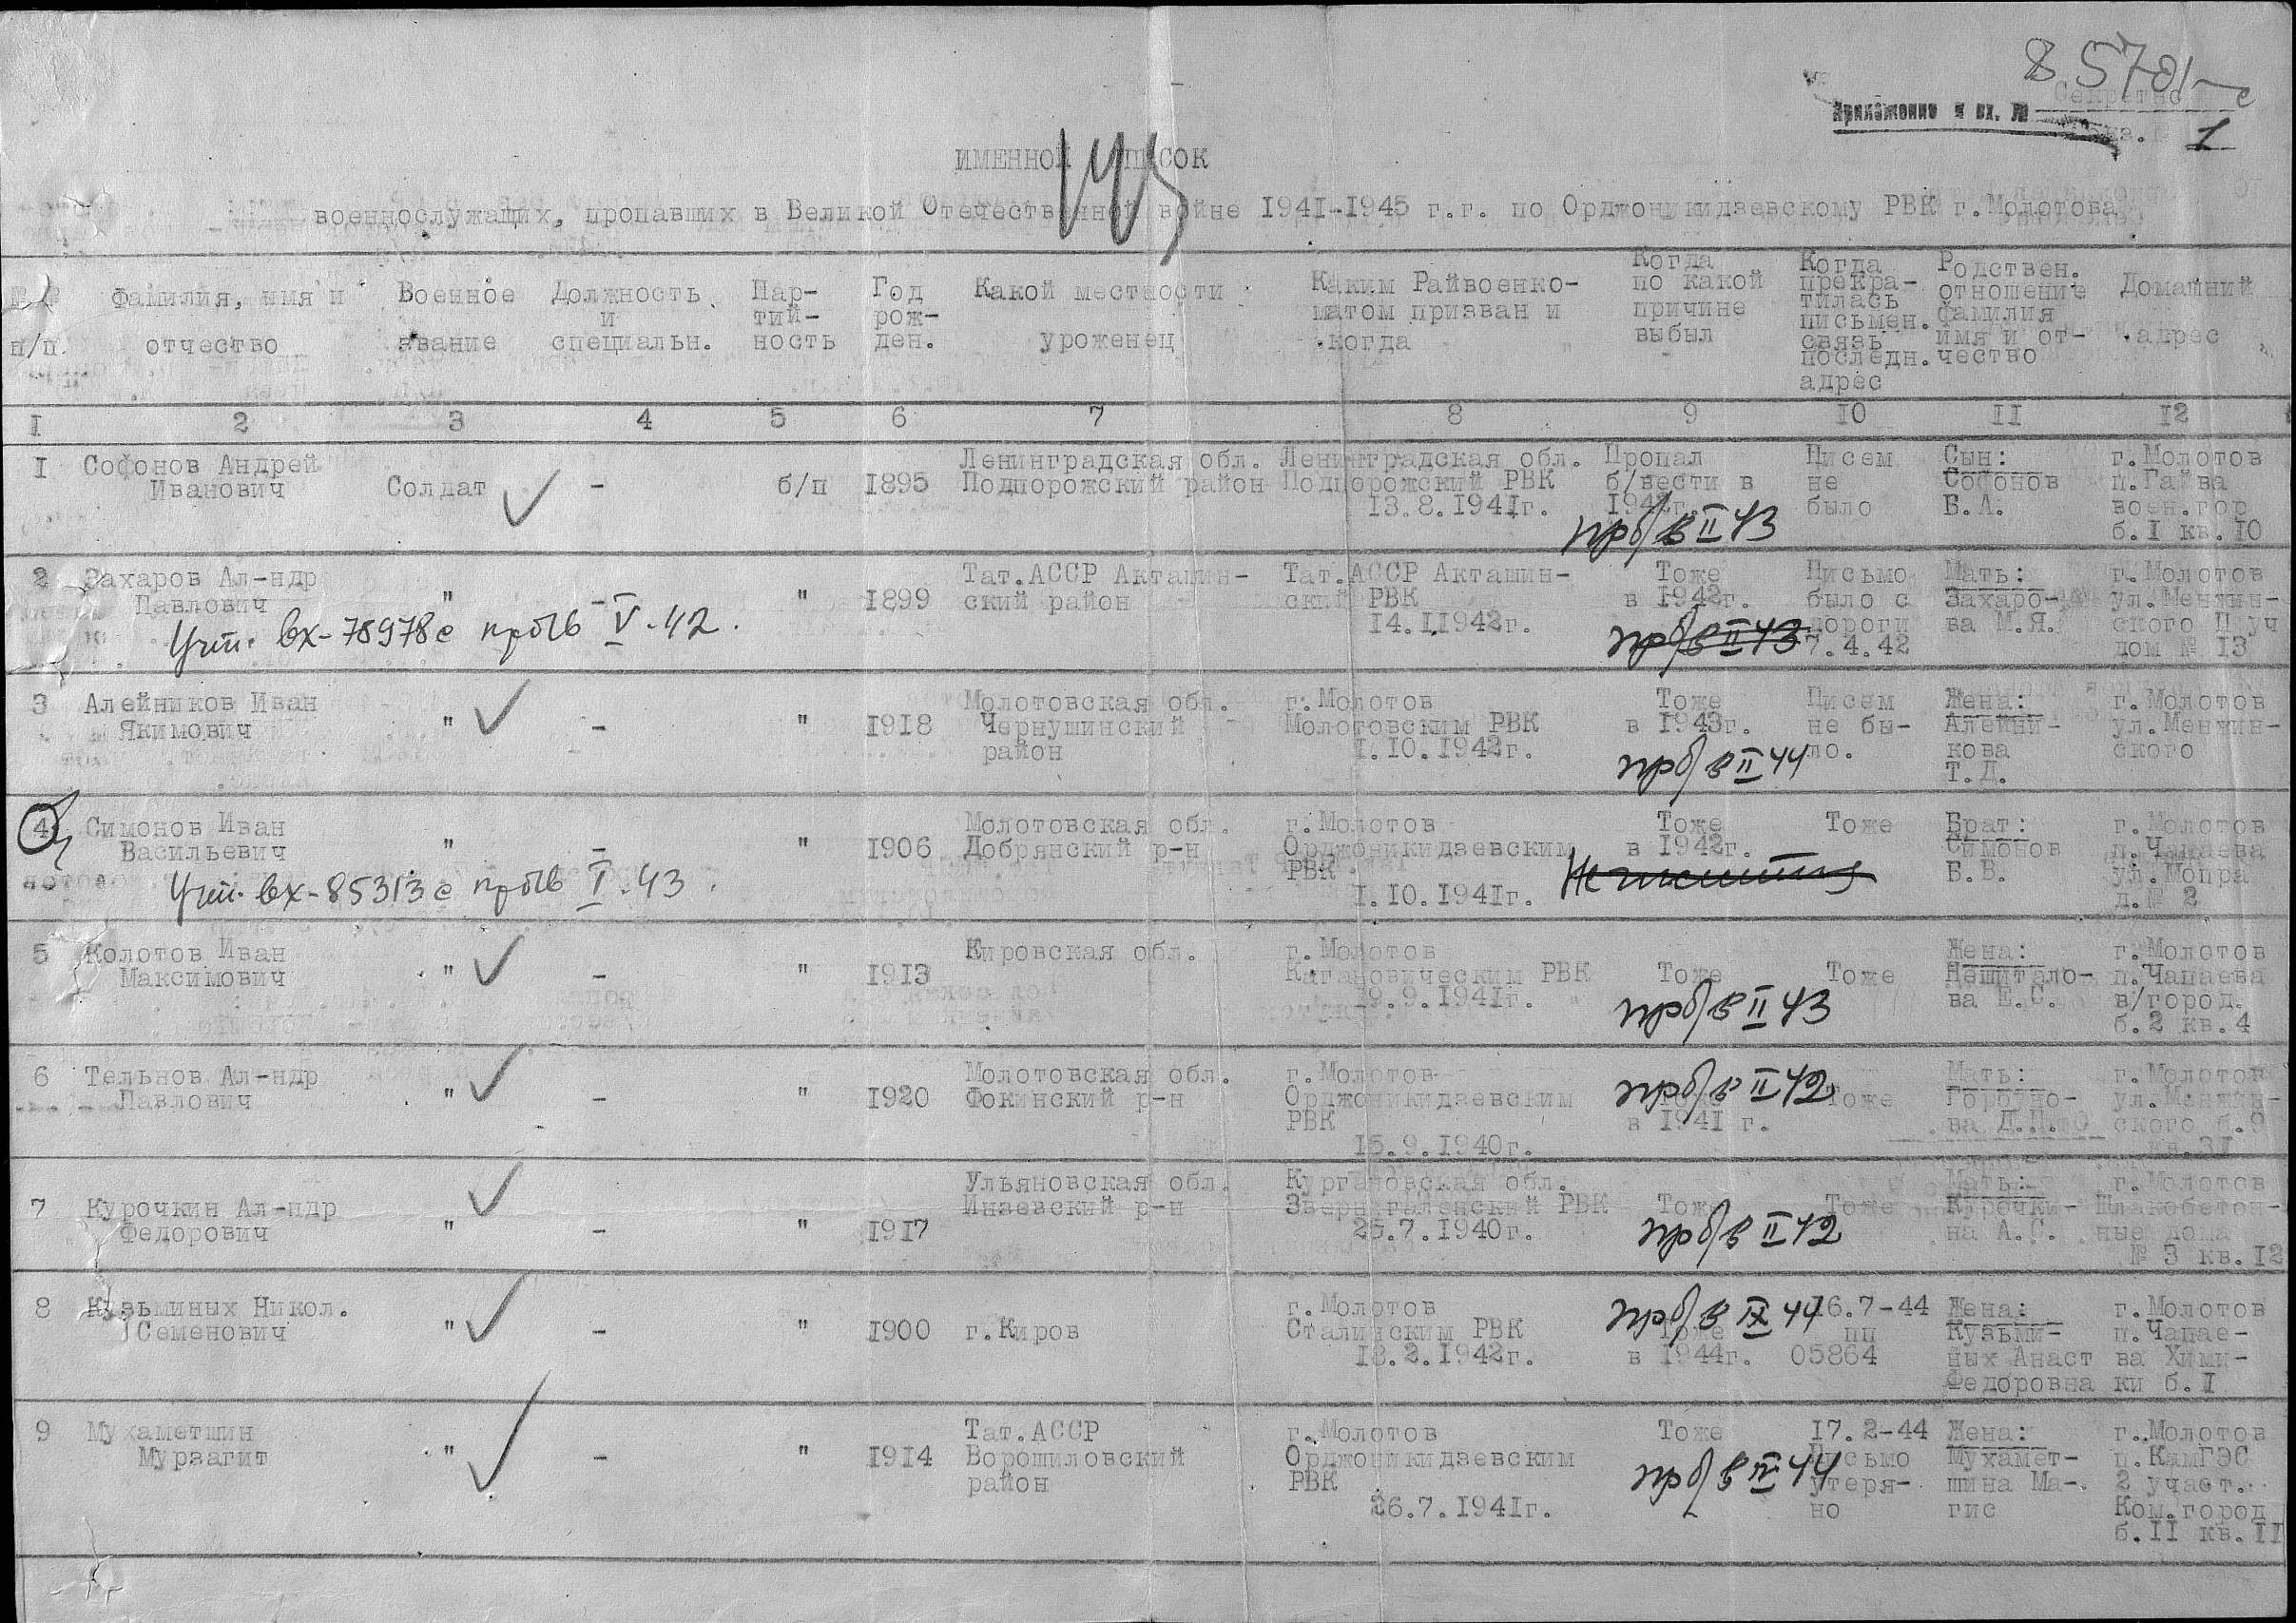 85701с
Секретно
Приложение к вх. №
Экз. № 1
ИМЕННОЙ СПИСОК
145
военнослужащих, пропавших в Великой Отечественной войне 1941-1945 г.г. по Орджоникидзевскому РВК г.Молотова
№№ п/п. Фамилия, имя и отчество Военное звание Должность и специальн. Пар-тий-ность Год рож-ден. Какой местности уроженец Каким Райвоенко-матом призван и когда Когда по какой причине выбыл Когда прекра-тилась письмен. связь последн. адрес Родствен. отношение фамилия имя и от-чество Домашний адрес
I 2 3 4 5 6 7 8 9 10 II 12
I Софонов Андрей Ленинградская обл. Ленинградская обл. Пропал Писем Сын: г.Молотов
Иванович Солдат - б/п 1895 Подпорожский район Подпорожский РВК б/вести в не Софонов п.Гайва
13.8.1941г. 1942г. было Б.А. воен.гор
пр б/в II 43 б.I кв.10
2 Захаров Ал-ндр Тат.АССР Акташин- Тат.АССР Акташин- Тоже Письмо Мать: г.Молотов
Павлович " - " 1899 ский район ский РВК в 1942г. было с Захаро- ул.Менжин-
14.I.1942г. дороги ва М.Я. ского II уч
Учт. вх-78978с пр б/в V-42. пр б/в II 43 7.4.42 дом № 13
3 Алейников Иван Молотовская обл. г.Молотов Тоже Писем Жена: г.Молотов
Якимович " - " 1918 Чернушинский Молотовским РВК в 1943г. не бы- Алейни- ул.Менжин-
район 1.10.1942г. ло. кова ского
пр б/в II 44 Т.Д.
4 Симонов Иван Молотовская обл. г.Молотов Тоже Тоже Брат: г.Молотов
Васильевич " - " 1906 Добрянский р-н Орджоникидзевским в 1942г. Симонов п.Чапаева
РВК Б.В. ул.Мопра
Учт. вх-85313с пр б/в I-43. 1.10.1941г. д.№ 2
5 Колотов Иван Кировская обл. г.Молотов Жена: г.Молотов
Максимович " - " 1913 Кагановическим РВК Тоже Тоже Нешитало- п.Чапаева
9.9.1941г. ва Е.С. в/город.
пр б/в II 43 б.2 кв.4
6 Тельнов Ал-ндр Молотовская обл. г.Молотов пр б/в II 42 Мать: г.Молотов
Павлович " - " 1920 Фокинский р-н Орджоникидзевским Тоже ул.Менжин-
РВК в 1941 г. ва Д.П. ского б.9
15.9.1940г. кв.31
7 Курочкин Ал-ндр Ульяновская обл. Кургановская обл. Мать: г.Молотов
Федорович " - " 1917 Инзевский р-н РВК Тоже Тоже Курочки- Шлакобетон-
25.7.1940г. пр б/в II 42 на А.С. ные дома
№ 3 кв.12
8 Кузьминых Никол. г.Молотов пр б/в IX 44 16.7-44 Жена: г.Молотов
Семенович " - " 1900 г.Киров Сталинским РВК Тоже пп Кузьми- п.Чапае-
18.2.1942г. в 1944г. 05864 ных Анаст ва Хими-
Федоровна ки б.I
9 Мухаметшин Тат.АССР г.Молотов Тоже 17.2-44 Жена: г.Молотов
Мурзагит " - " 1914 Ворошиловский Орджоникидзевским Письмо Мухамет- п.КамГЭС
район РВК пр б/в IV 44 утеря- шина Ма- 2 участ.
26.7.1941г. но гис Ком.город
б.II кв.II